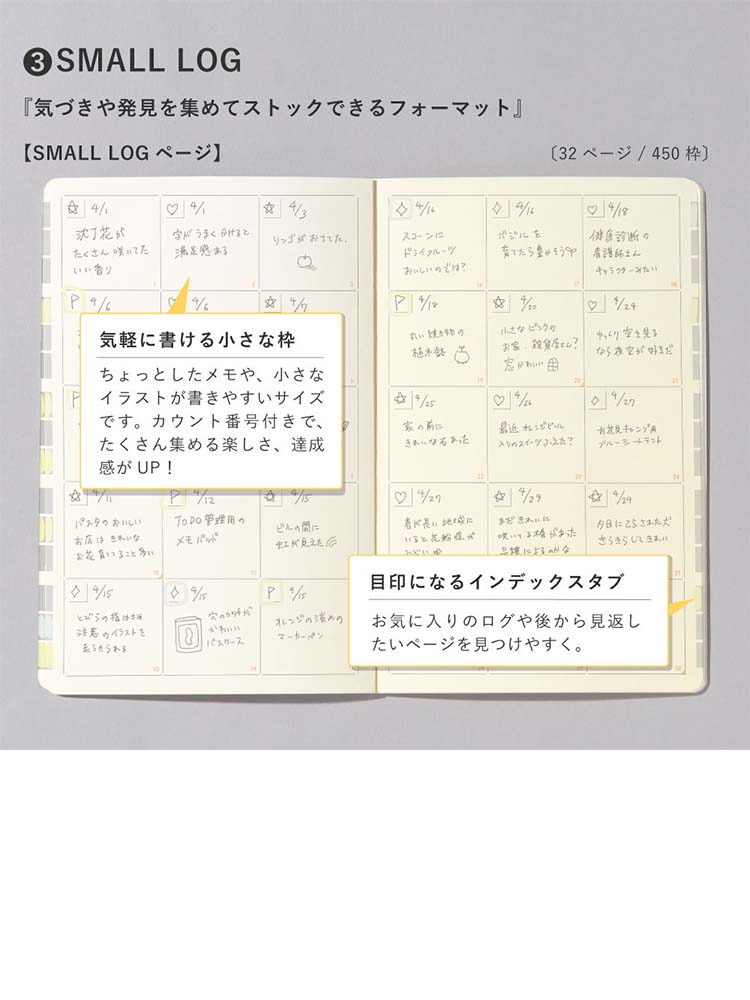 ❸SMALL LOG
『気づきや発見を集めてストックできるフォーマット』
【SMALL LOG ページ】
〔32 ページ / 450 枠〕
4/1
沈丁花が
たくさん咲いてた
いい香り
1
4/1
字がうまくかけると
満足感ある
2
4/3
リンゴがおちてた。
3
P 4/6
4/6
4/7
気軽に書ける小さな枠
ちょっとしたメモや、小さな
イラストが書きやすいサイズ
です。カウント番号付きで、
たくさん集める楽しさ、達成
感が UP！
4/11
パスタのおいしい
お店はきれいな
お花育ててること多い
10
P 4/12
TODO管理用の
メモパッド
11
4/15
ビルの間に
虹が見えた
12
4/15
とびらの指はさみ
注意のイラストを
13
4/15
穴のカタチが
かわいい
パスケース
14
P 4/15
オレンジの淡めの
マーカーペン
15
4/16
スコーンに
ドライフルーツ
おいしいのでは?
16
4/16
バジルを
育てたら豊かそう
17
4/18
健康診断の
看護師さん
キャラクターみたい
18
P 4/18
丸い焼き物の
植木鉢
19
4/20
小さなピンクの
お家、雑貨屋さん?
窓かわいい
20
4/24
ゆっくり空を見る
なら夜空が好きだ
21
4/25
家の前に
きれいな石あった
22
4/26
最近オレンジピール
入りのスイーツふえた?
23
4/27
お花見キャンプ用
ブルーシートテント
24
4/27
春が長い地域に
いると花粉症が
4/29
まだきれいに
咲いてる椿があった
品種によるのかな
4/29
夕日にてらされた犬
きらきらしてきれい
目印になるインデックスタブ
お気に入りのログや後から見返し
たいページを見つけやすく。
30